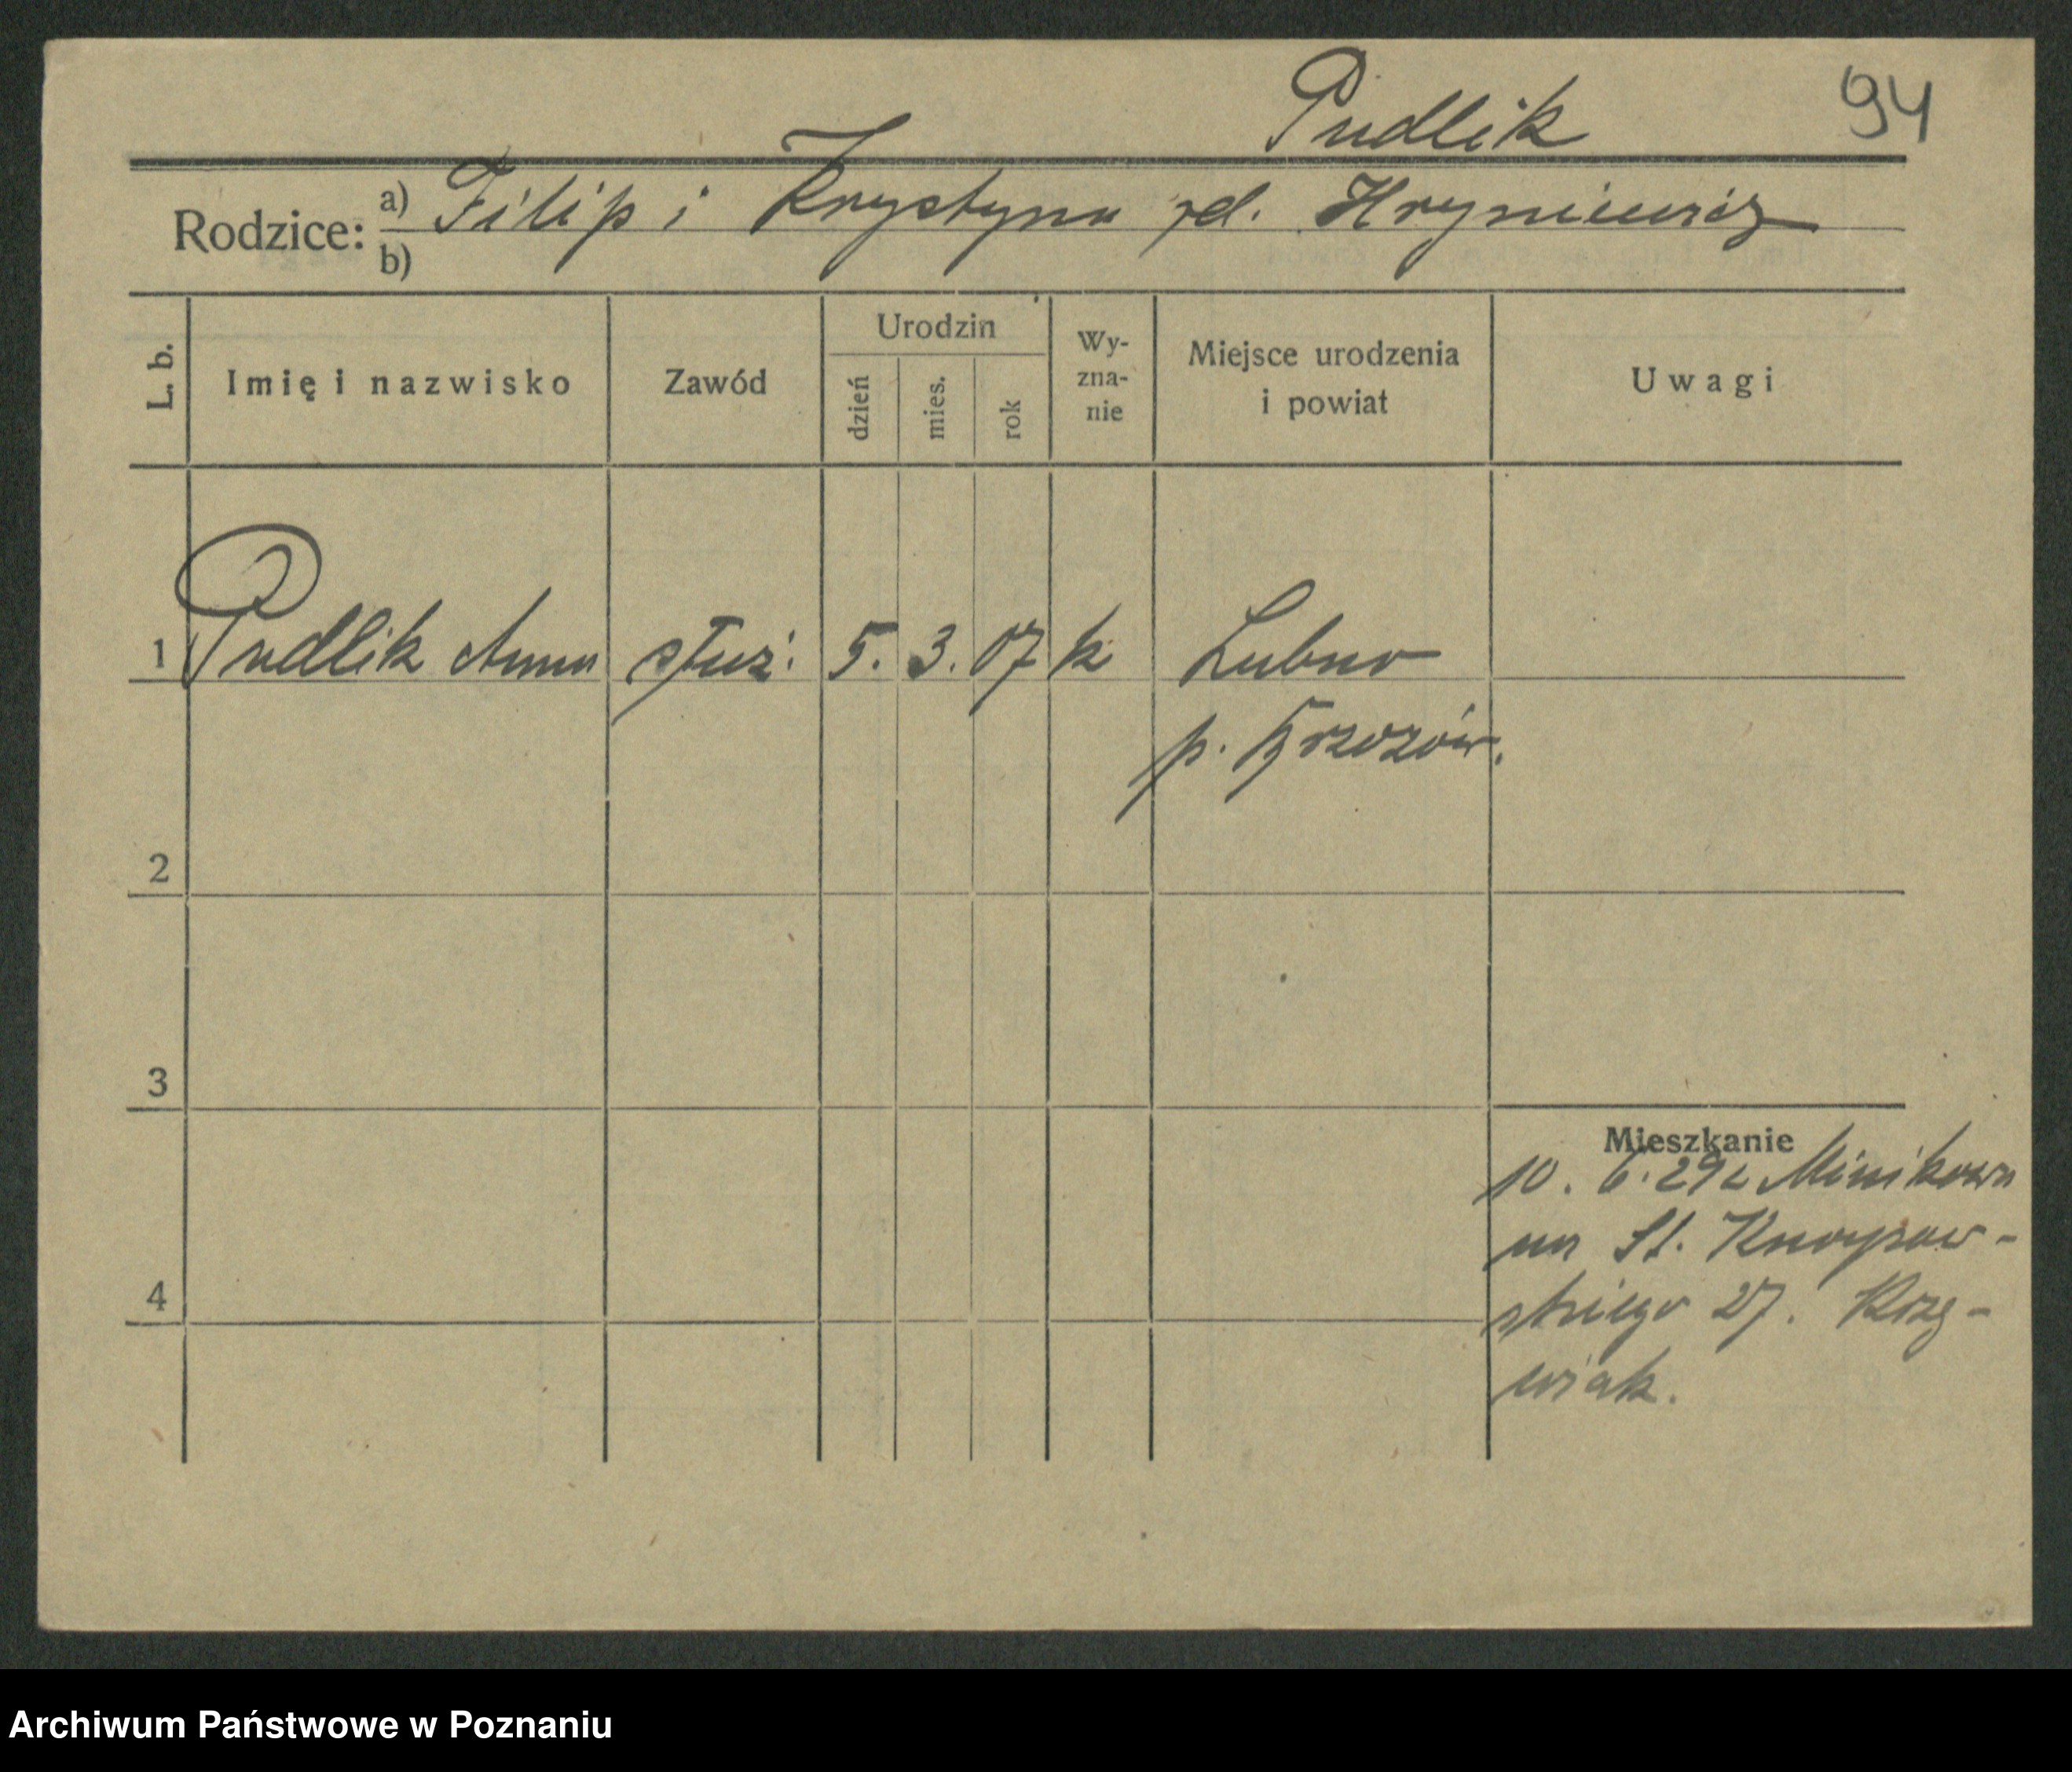 Pudlik 94
Rodzice: a) Filip i Krystyna zd. Hryniewicz
b)
L. b. Imię i nazwisko Zawód Urodzin dzień mies. rok Wy-zna-nie Miejsce urodzenia i powiat Uwagi
1 Pudlik Anna służ. 5. 3. 07 k Lubno
p. Brzozów.
2
3
Mieszkanie
10. 6. 29 z Minikowa
na St. Knapow-
4
skiego 27.
wiak.
Archiwum Państwowe w Poznaniu